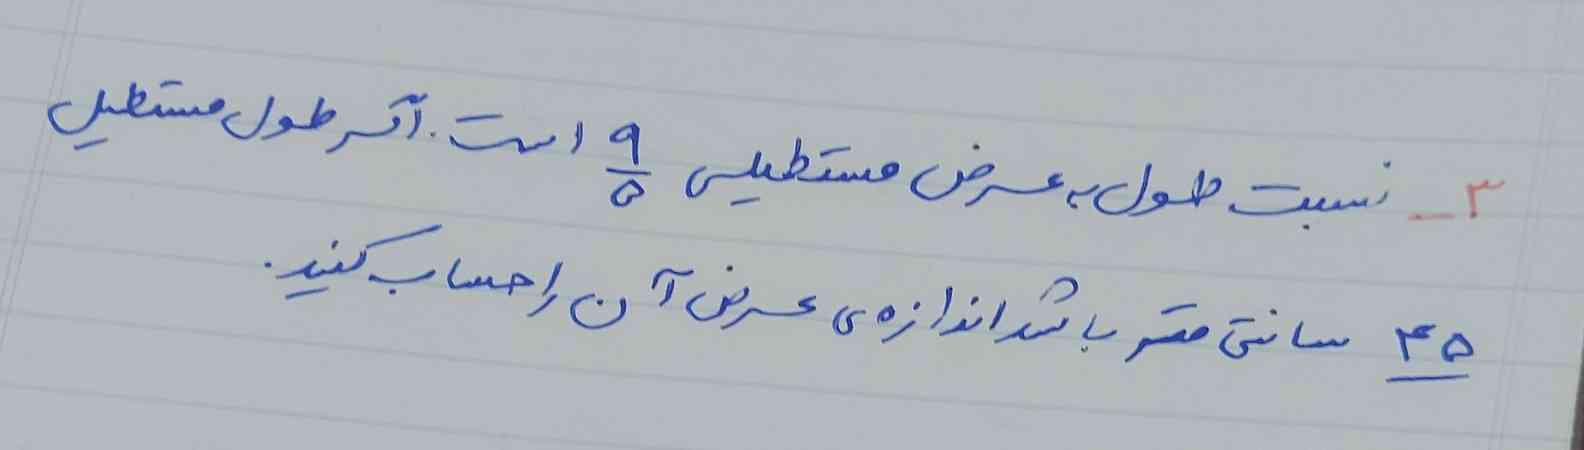 ۳_ نسبت طول به عرض مستطیلی ۹/۵ است. اگر طول مستطیل
۴۵ سانتی متر باشد اندازه ی عرض آن را حساب کنید.